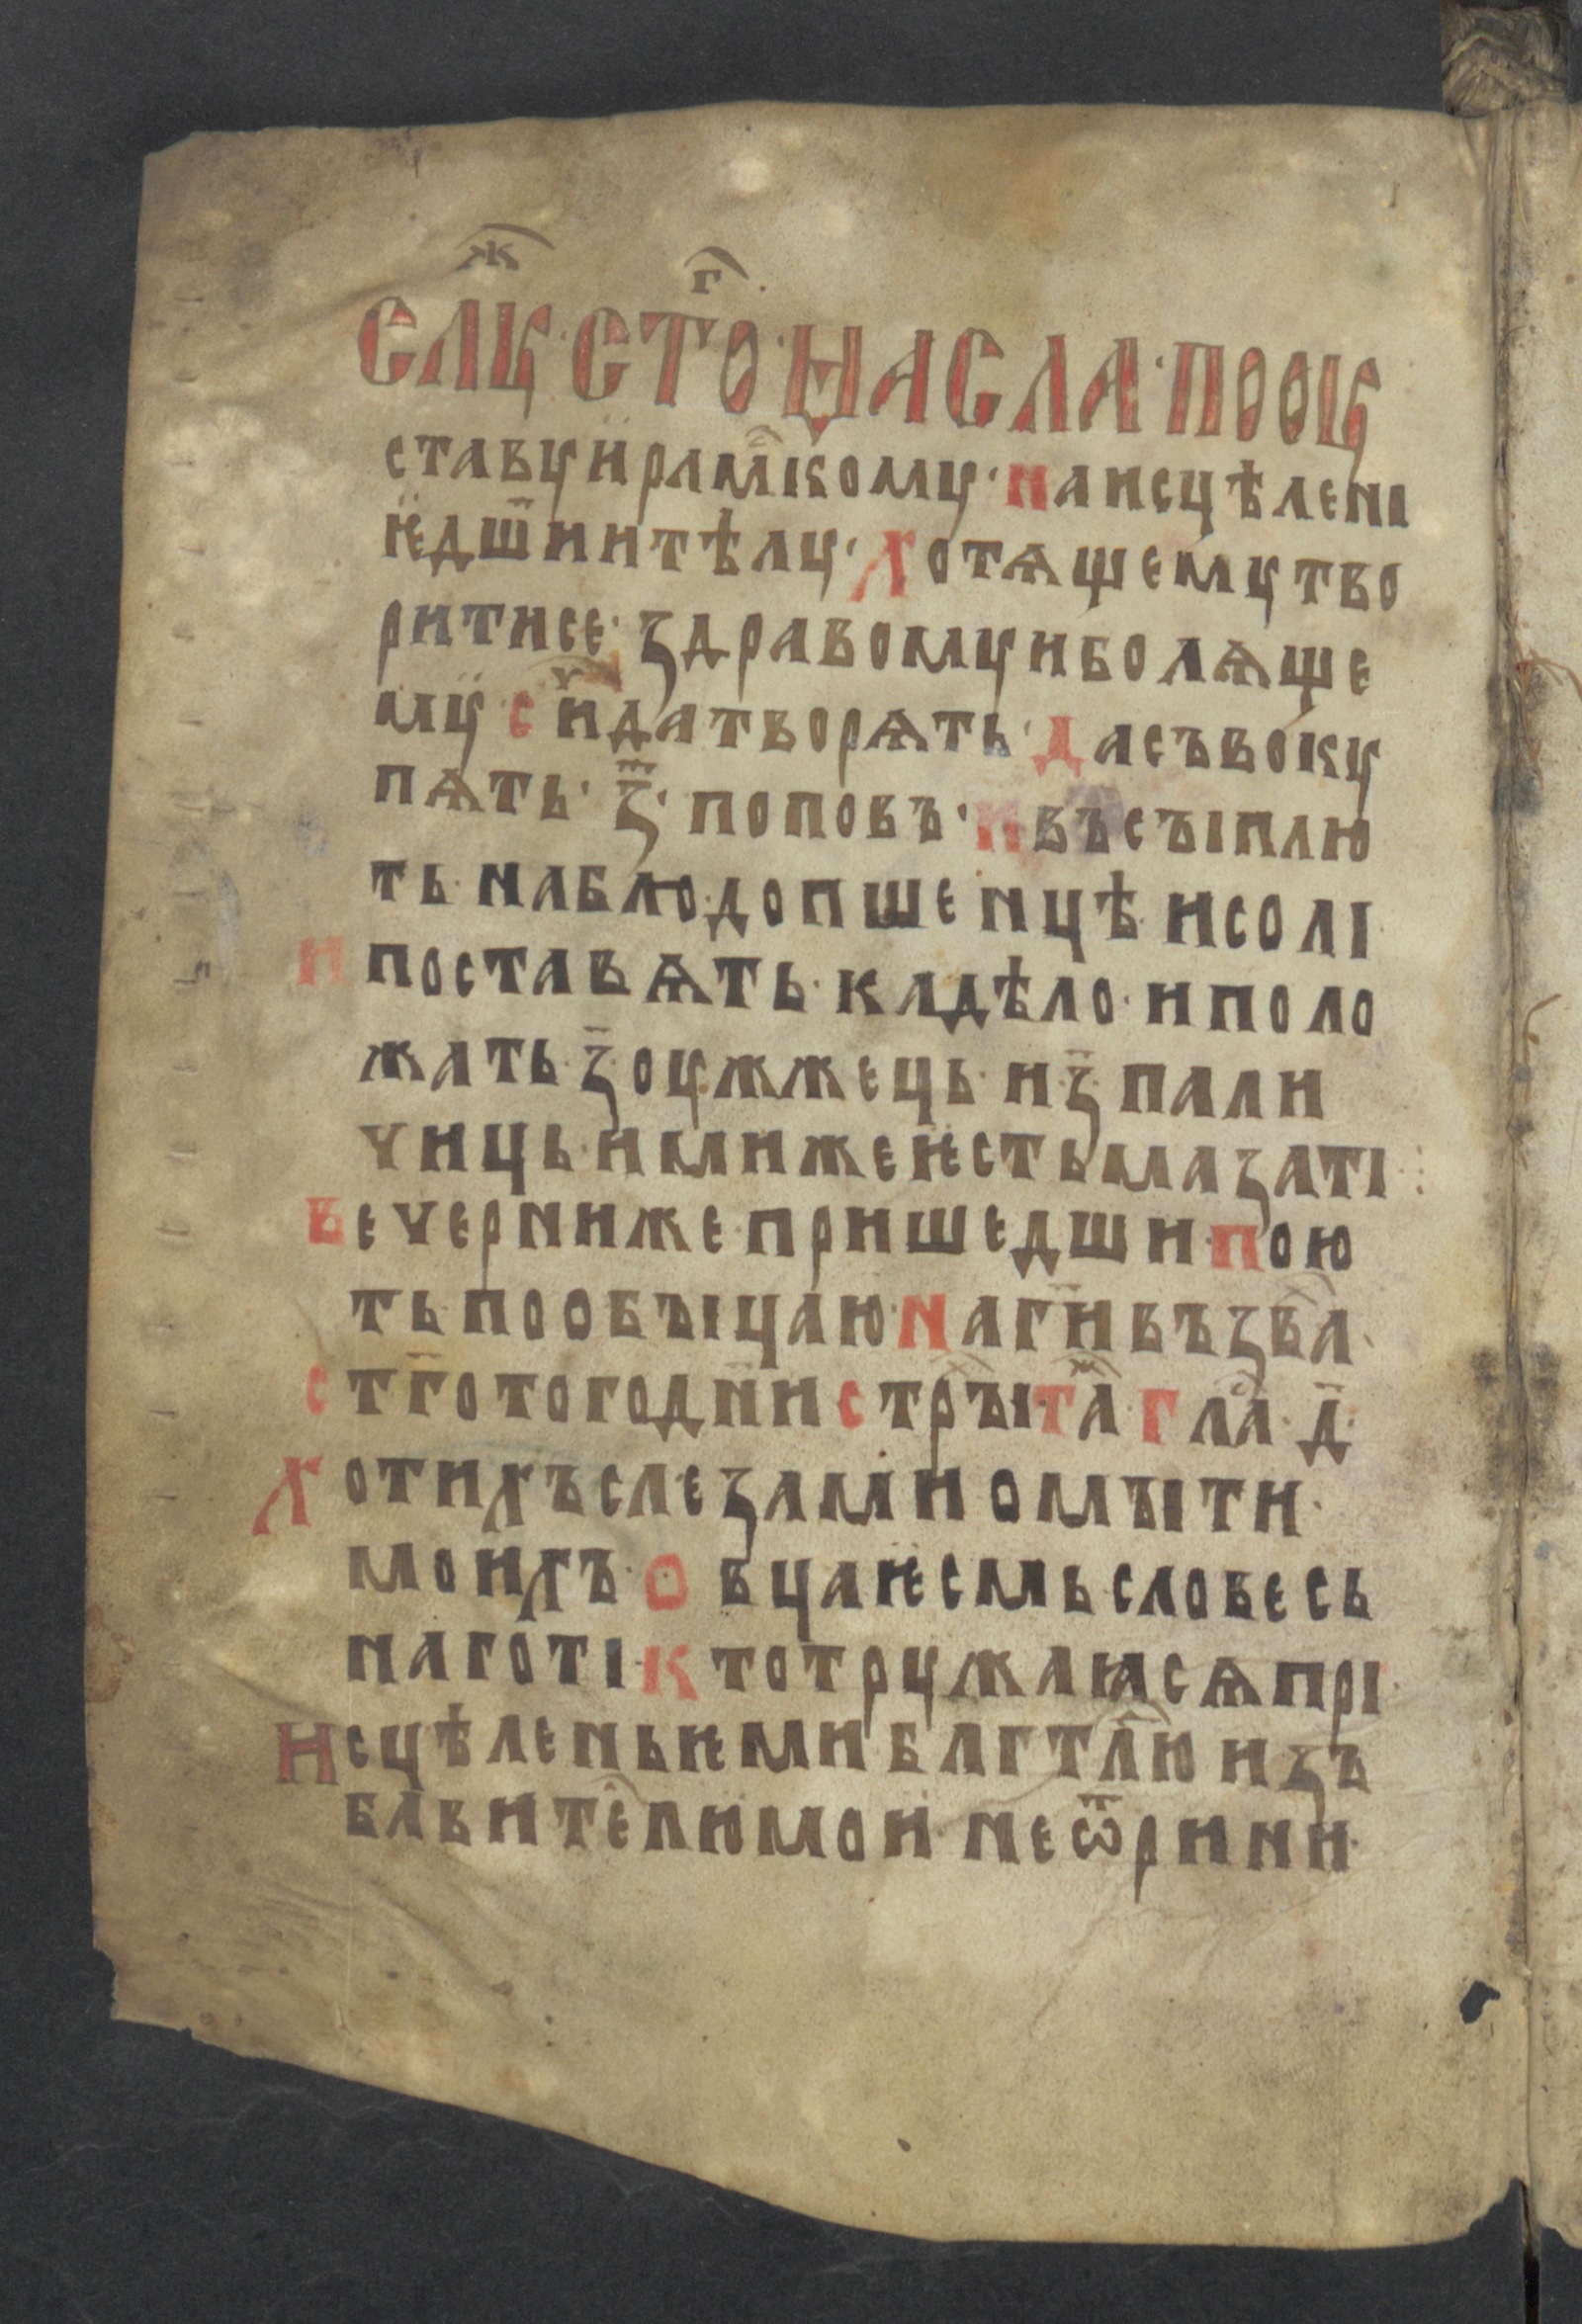 СЛꙊ҇Ж СТ҇ГО МАСЛА ПО ОУ
ставꙋ ѥрⷭ҇лмкомꙋ · на исцѣлені
ѥ дш҃и и тѣлꙋ · Хотѧщемꙋ тво
рити се · здравомꙋ и болѧще
мꙋ · си҇ч да творѧть · Да съвокꙋ
пѧть · з҃ · поповъ · и въсыплю
ть на блюдо пшенцѣ и солі
И поставѧть кадѣло · и поло
жать з҃ оцѫжець и з҃ пали
чиць имиже ѥсть мазаті ⁝
Вечерниже пришедши пою
ть по обꙑцаю · На ги҃ възва҇
ст҃го того дн҃и стрⷯꙑ таⷤ гла҇ д҃ ·
Хотихъ слезами омꙑти ·
моихъ Овца ѥсмь словесь
наго ті · Кто тружаꙗсѧ прі
Исцѣленьѥ ми блгтлю҇ изъ
бавителю мои не ѿрини